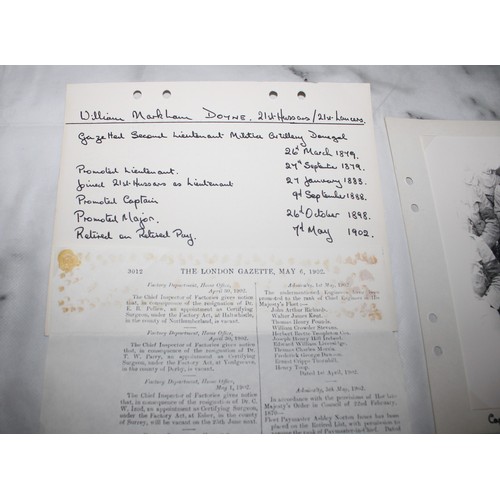 William Markham DOYNE, 21st Hussars/21st Lancers.
Gazetted Second Lieutenant Militia Artillery Donegal
26th March 1879.
Promoted Lieutenant. 27th September 1879.
Joined 21st Hussars as Lieutenant 27 January 1883.
Promoted Captain 9th September 1888.
Promoted Major. 26th October 1898.
Retired on Retired Pay. 7th May 1902.
3012 THE LONDON GAZETTE, MAY 6, 1902.
Factory Department, Home Office,
April 30, 1902.
The Chief Inspector of Factories gives notice
that, in consequence of the resignation of Dr.
E. B. Pellew, an appointment as Certifying
Surgeon, under the Factory Act, at
in the county of Northumberland, is vacant.
Factory Department, Home Office,
April 30, 1902.
The Chief Inspector of Factories gives notice
that, in consequence of the resignation of Dr.
T. W. Parry, an appointment as Certifying
Surgeon, under the Factory Act, at Youlgreave,
in the county of Derby, is vacant.
Factory Department, Home Office,
May 1, 1902.
The Chief Inspector of Factories gives notice
that, in consequence of the resignation of Dr. C.
W. Izod, an appointment as Certifying Surgeon,
under the Factory Act, at Esher, in the county
of Surrey, will be vacant on the 24th June next.
Admiralty, 1st May, 1902.
The undermentioned Engineers have been
promoted to the rank of Chief Engineer in His
Majesty's Fleet:—
John Arthur
Walter James Kent.
Thomas Henry Pounds.
William Crowder Stevens.
Herbert Bertie
Joseph Henry Hill Ireland.
Edward William
Thomas Charles Morris.
Frederick George Dawson.
Ernest Cripps
Henry Toop.
Dated 1st April, 1902.
Admiralty, 5th May, 1902.
In accordance with the provisions of Her late
Majesty's Order in Council of 22nd February,
1870—
Fleet Paymaster Ashley Norton has been
placed on the Retired List, with permission to
Dated